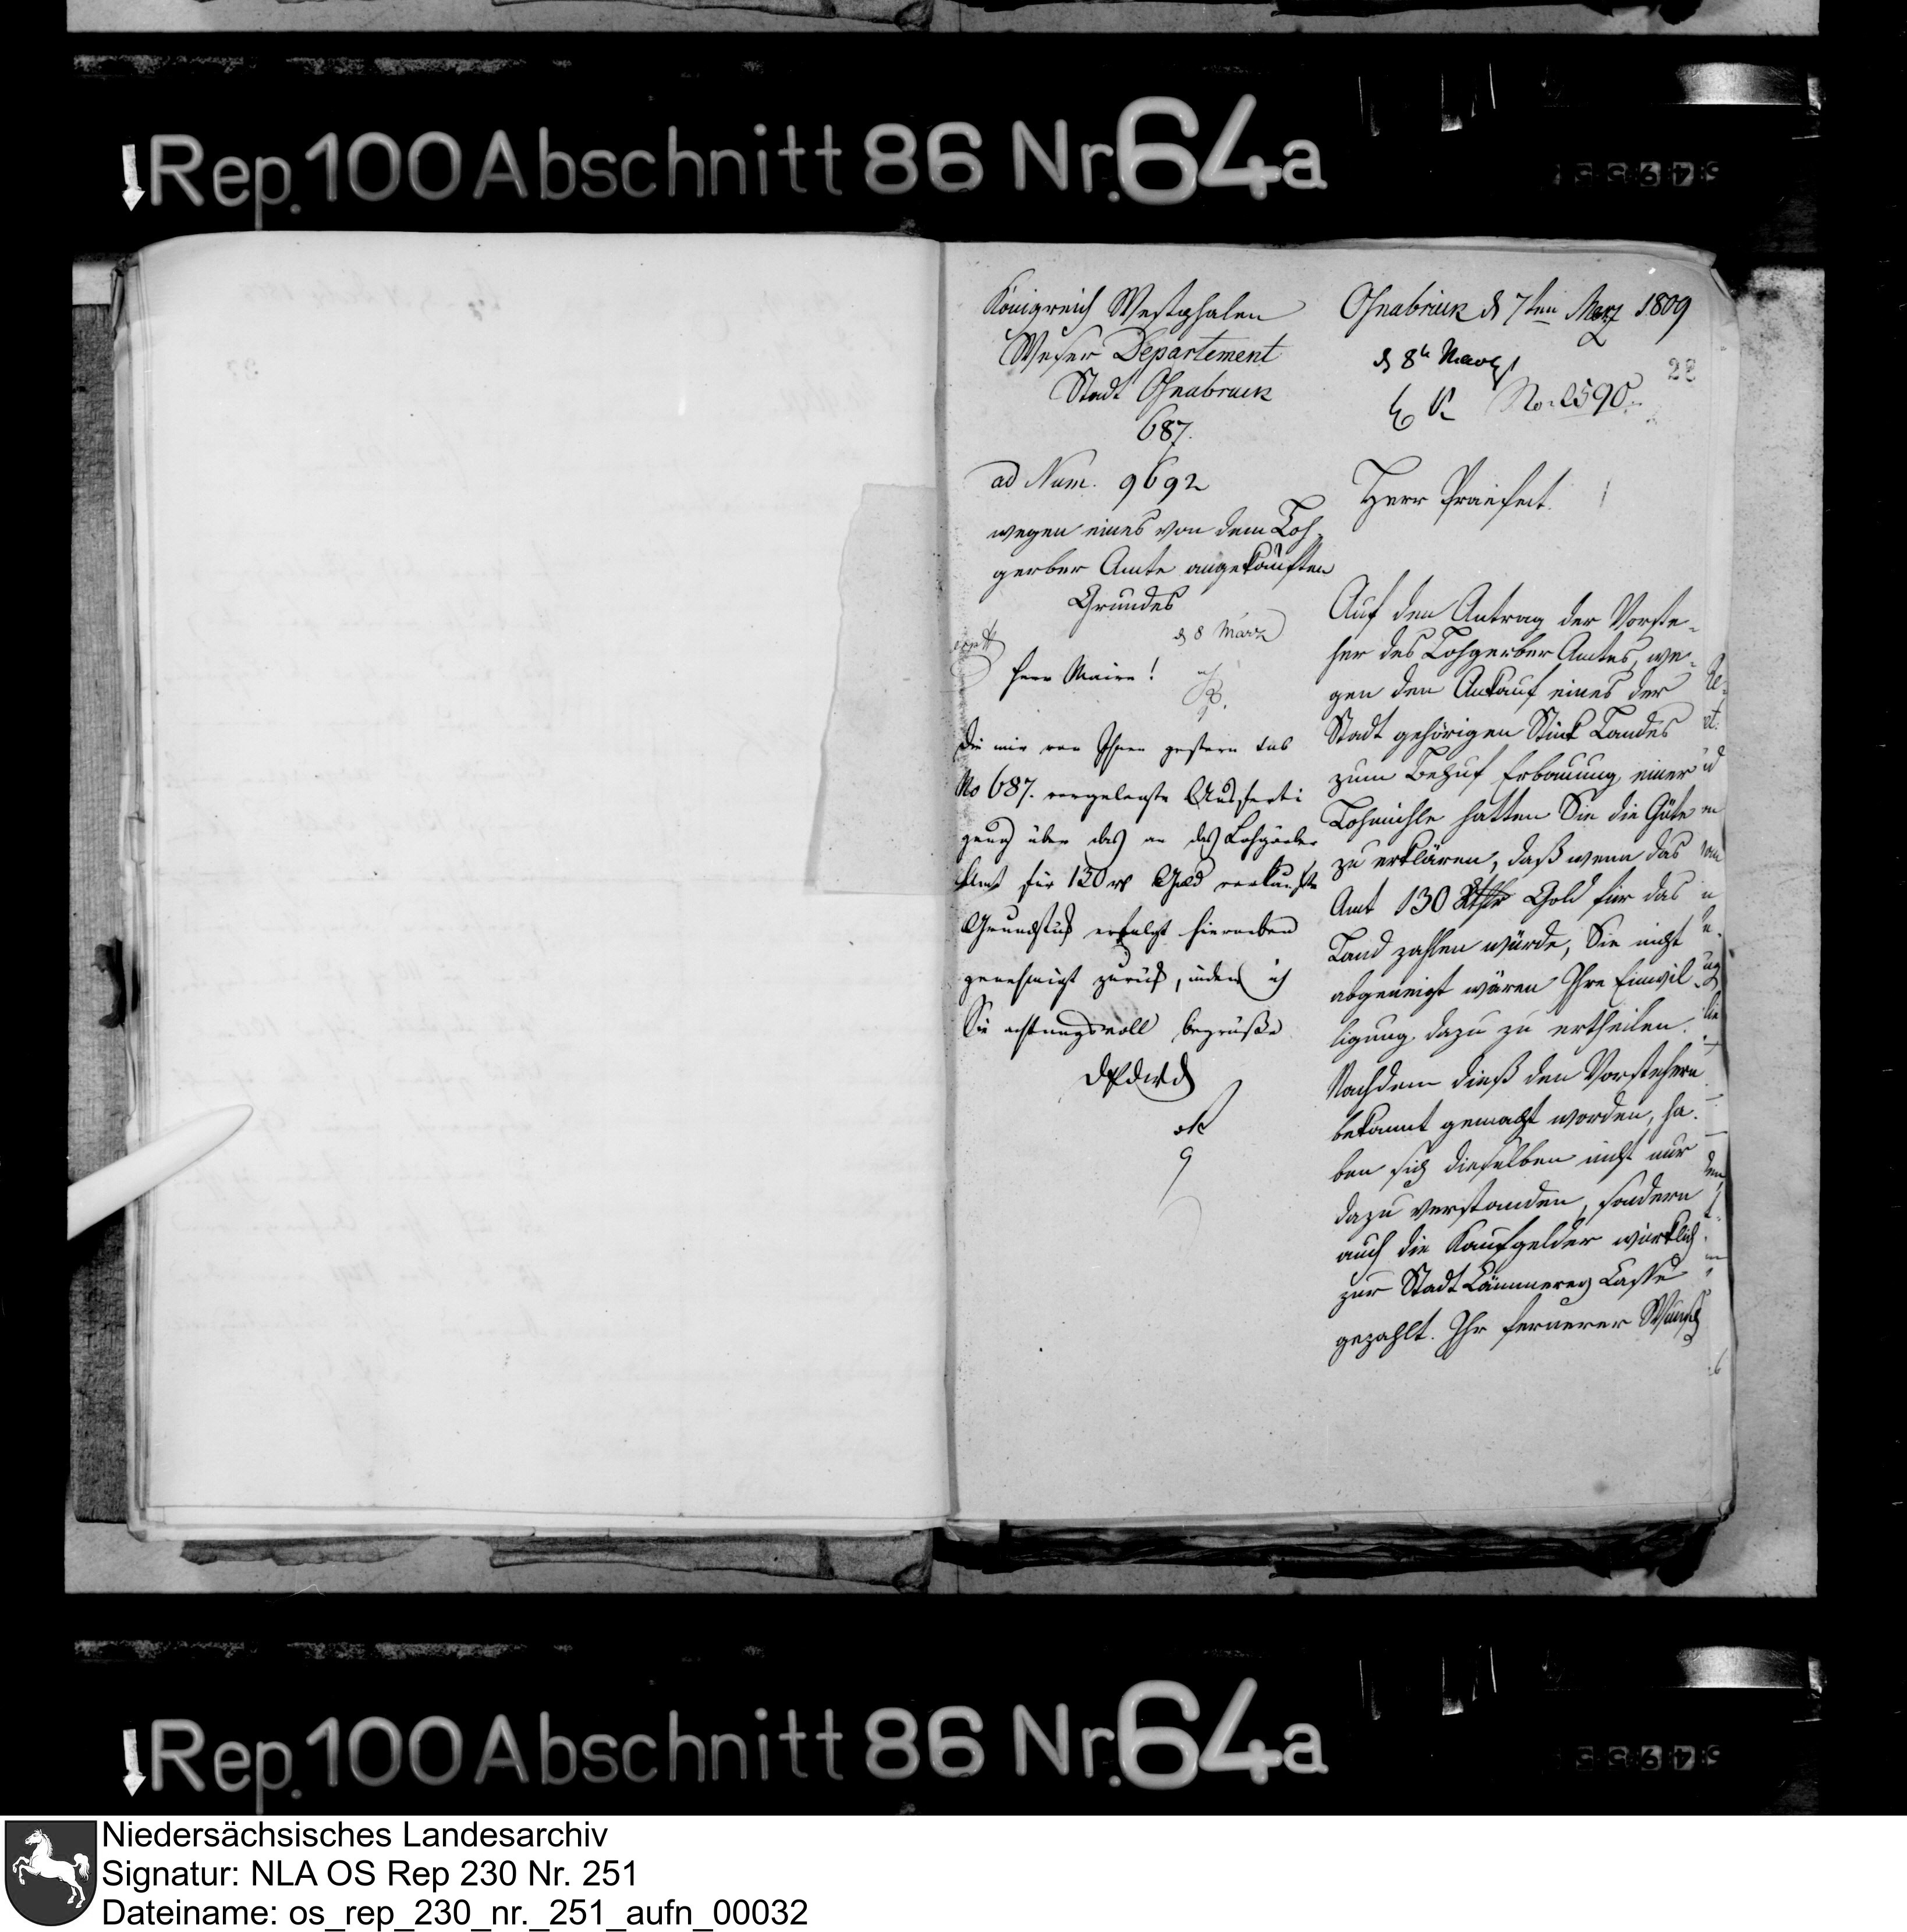 Rep. 100 Abschnitt 86 Nr. 64a
Königreich Westphalen
Weser Departement
Stadt Osnabrück
687.
ad Num. 9692
wegen eines von dem Loh-
gerber Amte angekauften
Grundes
d 8 März
Herr Maire!
Die mir von Ihnen gestern sub
No 687. vorgelegte Ausferti
gung über das an das Lohgerber
Amt für 130 rt Gold verkaufte
Grundstück erfolgt hierneben
genehmigt zurück, indem ich
Sie achtungsvoll begrüße
DPdWD
Osnabrück d 7ten Merz 1809
d 8t März
No. 2590.
28
Herr Praefect.
Auf den Antrag der Vorste-
her des Lohgerber Amtes, we-
gen den Ankauf eines der
Stadt gehörigen Stück Landes
zum Behuf Erbauung einer
Lohmühle hatten Sie die Güte
zu erklären, daß wenn das
Amt 130 Rthlr Gold für das
Land zahlen würde, Sie nicht
abgeneigt wären Ihre Einwil-
ligung dazu zu ertheilen.
Nachdem dieß den Vorstehern
bekannt gemacht worden, ha-
ben sich dieselben nicht nur
dazu verstanden, sondern
auch die Kaufgelder würklich
zur Stadt Kämmerey Casse
gezahlt. Ihr fernerer Wunsch
Rep. 100 Abschnitt 86 Nr. 64a
Niedersächsisches Landesarchiv
Signatur: NLA OS Rep 230 Nr. 251
Dateiname: os_rep_230_nr._251_aufn_00032